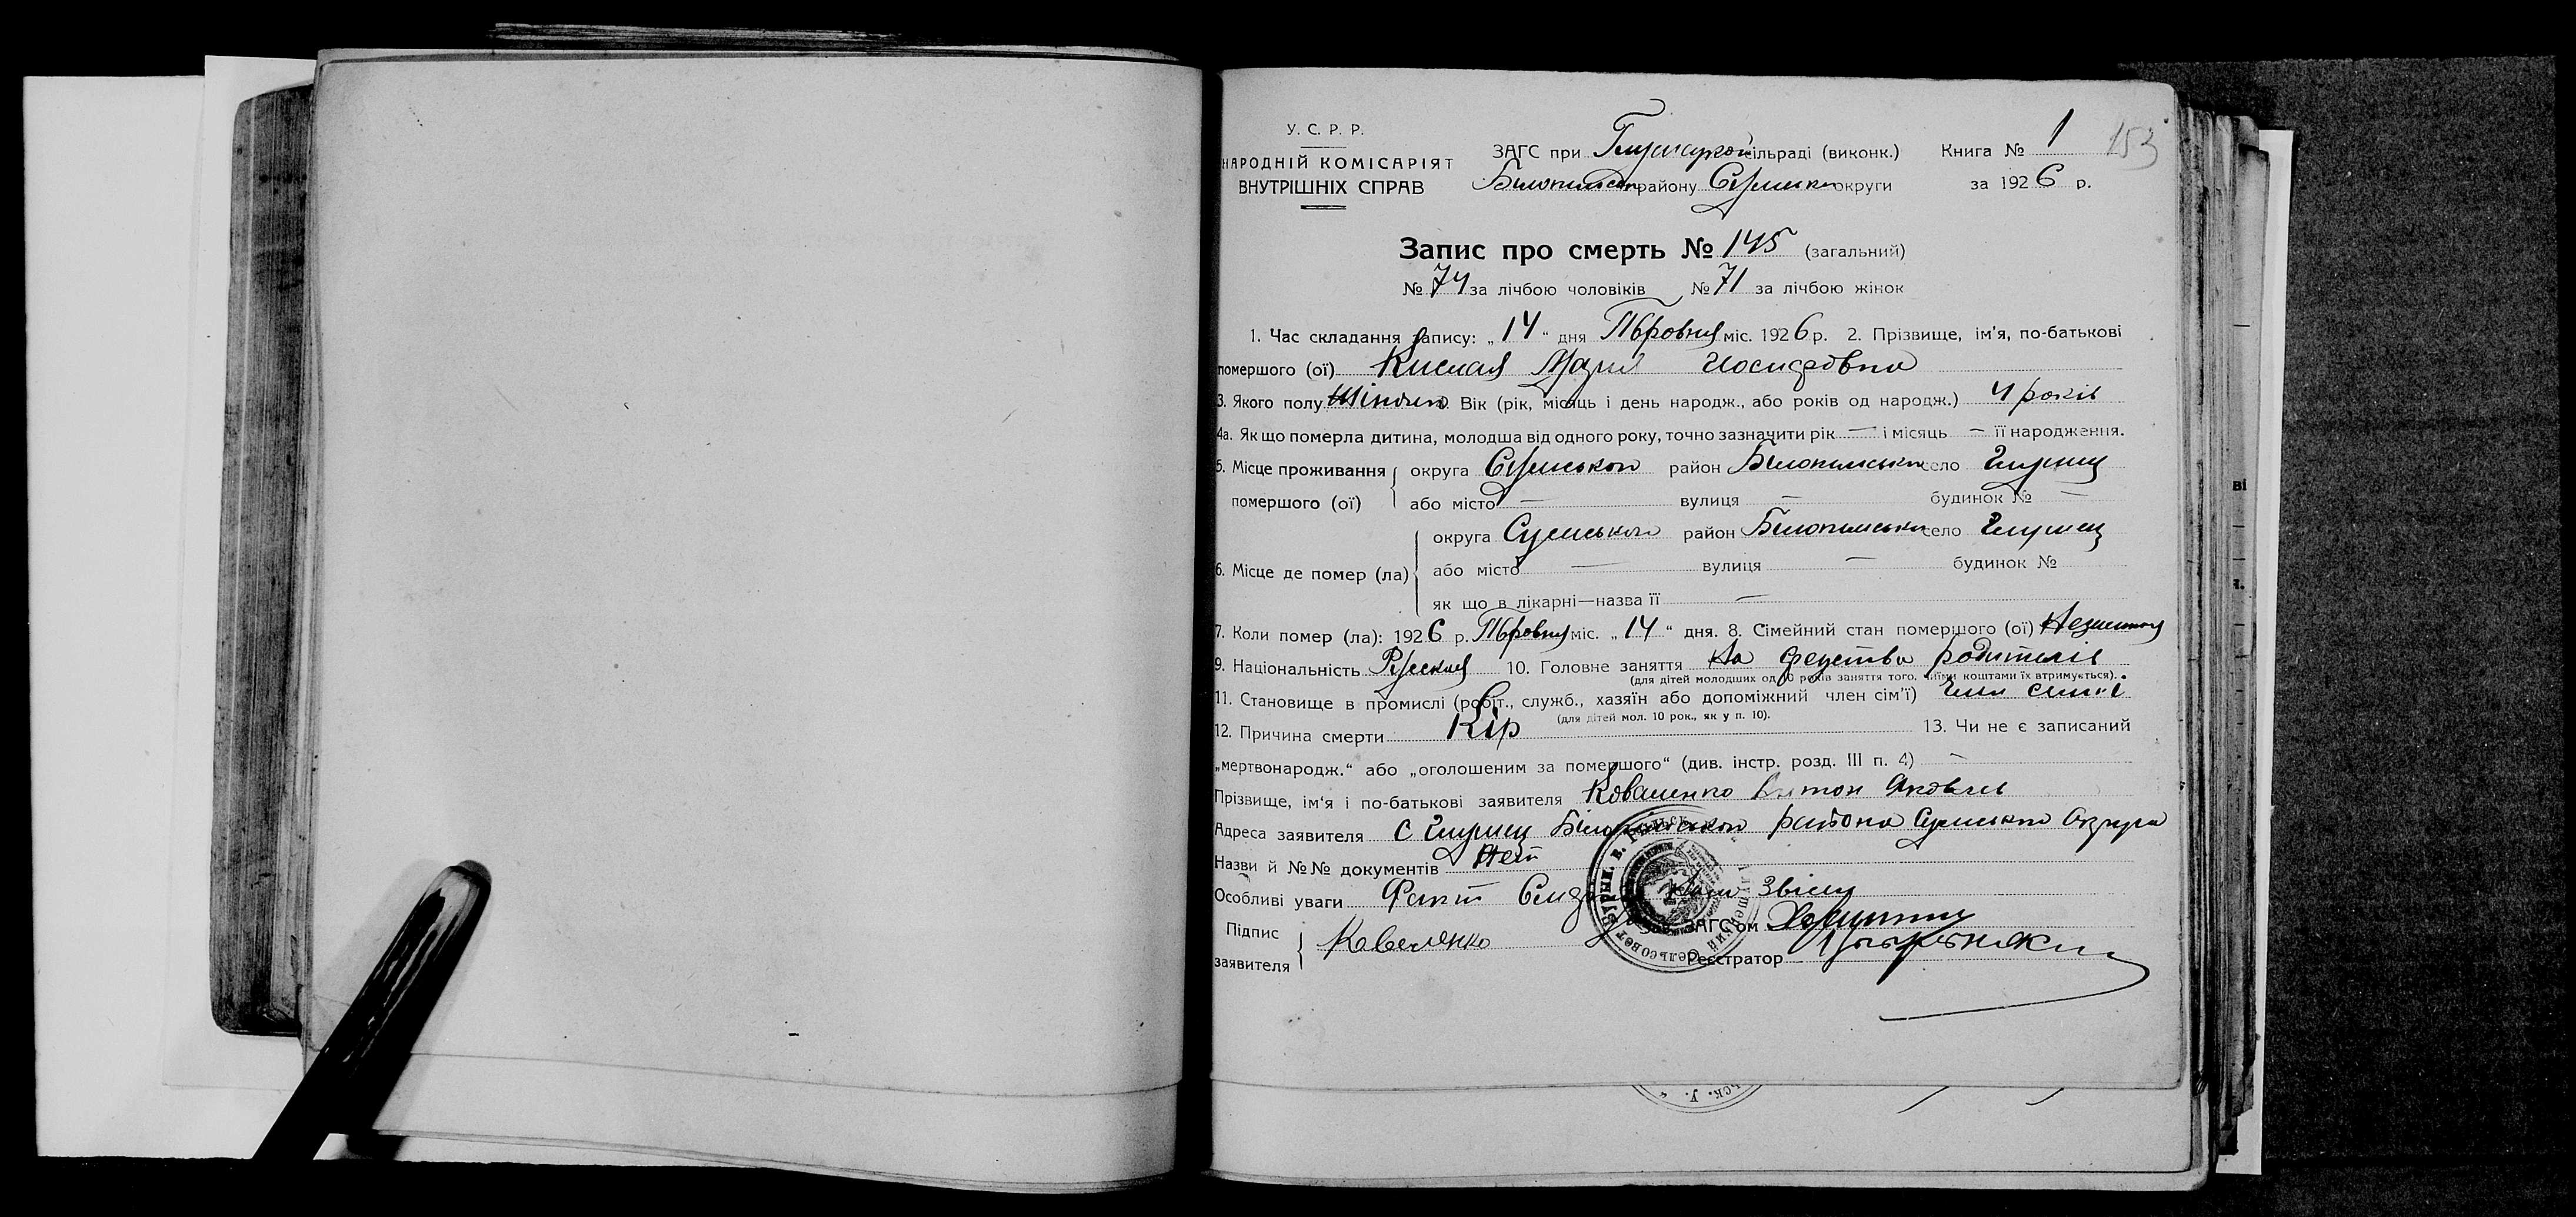 У. С. Р. Р.
НАРОДНІЙ КОМІСАРІЯТ
ВНУТРІШНІХ СПРАВ
ЗАГС при сільраді (виконк.) Книга № 1 153
району округи за 1926 р.
Запис про смерть № 145 (загальний)
№ 74 за лічбою чоловіків № 71 за лічбою жінок
1. Час складання запису: „14“ дня міс. 1926 р. 2. Прізвище, ім'я, по-батькові
помершого (ої) Кислая Мария Иосифовна
3. Якого полу Вік (рік, місяць і день народж., або років од народж.) 4 років
4а. Як що померла дитина, молодша від одного року, точно зазначити рік — і місяць — її народження.
5. Місце проживання помершого (ої) округа Сумськой район село
або місто — вулиця — будинок № —
6. Місце де помер (ла) округа Сумського район село
або місто — вулиця — будинок №
як що в лікарні—назва її —
7. Коли помер (ла): 1926 р. міс. „14“ дня. 8. Сімейний стан помершого (ої)
9. Національність Руская 10. Головне заняття На средства родителів
(для дітей молодших од 10 років заняття того, чиїми коштами їх втримується).
11. Становище в промислі (робіт., служб., хазяїн або допоміжний член сім'ї) член сим'ї
(для дітей мол. 10 рок., як у п. 10).
12. Причина смерти Кір 13. Чи не є записаний
„мертвонародж.“ або „оголошеним за помершого“ (див. інстр. розд. III п. 4) —
Прізвище, ім'я і по-батькові заявителя Коваленко Антон Яковлев
Адреса заявителя с района Сумського Округа
Назви й №№ документів Нет
Особливі уваги Факт
Підпис заявителя Коваленко
Зав. ЗАГС'ом
Реєстратор